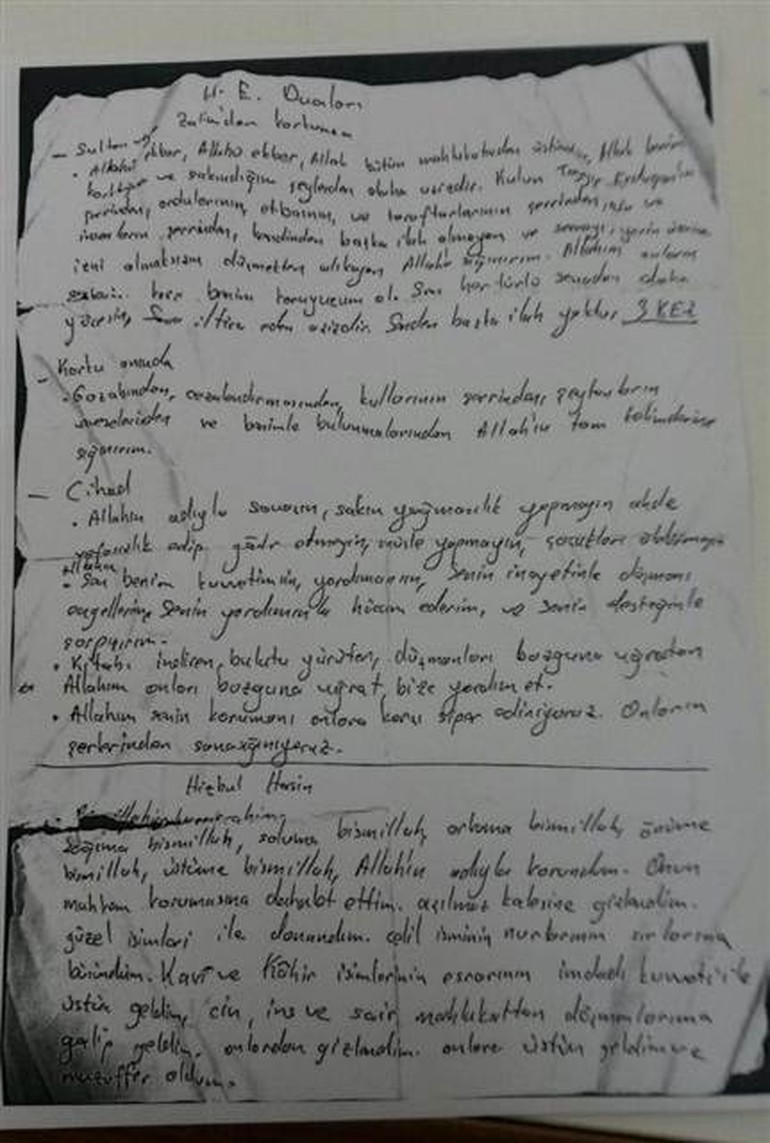 H. E. Duaları
Zalimden korkunca
- Sultan
• Allahü ekber, Allahü ekber, Allah bütün mahlukatından üstündür, Allah benim
korktuğum ve sakındığım şeylerden daha yücedir. Kulun
şerrinden, ordularının, etbaının, ve taraftarlarının şerrinden ins ve
şerrinden, kendinden başka ilah olmayan ve semayı, yerin üzerine
izni olmaksızın düşmekten alıkoyan Allah'a sığınırım. Allahım onların
karşı benim koruyucum ol. Sen her türlü senadan daha
yücesin, iltica eden azizdir. Senden başka ilah yoktur. 3 KEZ
- Korku anında
• Gazabından, cezalandırmasından, kullarının şerrinden, şeytanların
vesveselerinden ve benimle bulunmalarından Allah'ın tam kelimelerine
sığınırım.
- Cihad
• Allahın adıyla savaşın, sakın yağmacılık yapmayın ahde
vefasızlık edip gadr etmeyin, müsle yapmayın, çocukları öldürmeyin
Allahım
• Sen benim kuvvetimsin, yardımcımsın, Senin inayetinle düşmanı
engellerim, Senin yardımınla hücum ederim, ve Senin desteğinle
çarpışırım.
• Kitabı indiren, bulutu yürüten, düşmanları bozguna uğratan
Allahım onları bozguna uğrat, bize yardım et.
• Allahım senin korumanı onlara karşı siper ediniyoruz. Onların
şerlerinden sana sığınıyoruz.
Hizbul Hasin
• Bismillahirrahmanirrahim
Sağıma bismillah, soluma bismillah, arkama bismillah, önüme
bismillah, üstüme bismillah, Allah'ın adıyla korundum. Onun
muhkem korumasına dehalet ettim. açılmaz kalesine gizlendim.
güzel isimleri ile donandım. celil isminin nurlarının sırlarına
büründüm. Kavi ve Kahir isimlerinin esrarının imdadı kuvveti ile
üstün geldim, cin, ins ve sair mahlukattan düşmanlarıma
galip geldim. onlardan gizlendim. onlara üstün geldim ve
muzaffer oldum.